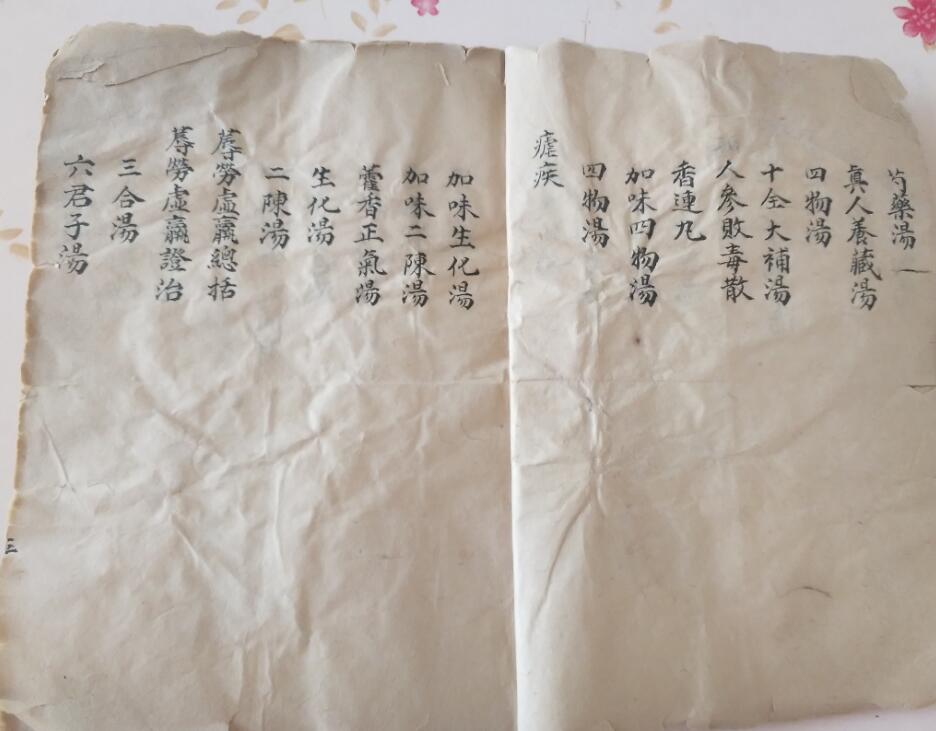 芍藥湯
真人養臟湯
四物湯
十全大補湯
人參敗毒散
香連丸
加味四物湯
四物湯
瘧疾
加味生化湯
加味二陳湯
藿香正氣湯
生化湯
二陳湯
蓐勞虛羸總括
蓐勞虛羸證治
三合湯
六君子湯
三